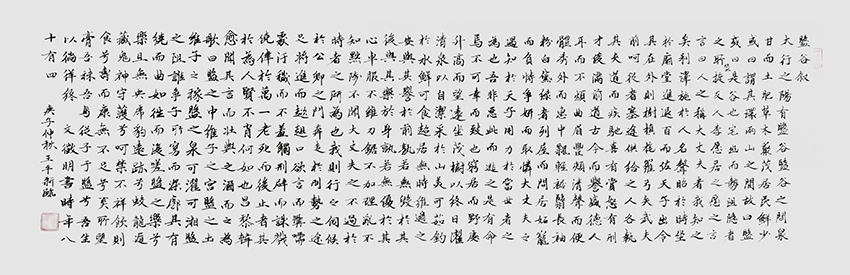 盤谷叙
太行之陽有盤谷盤谷之間泉
甘而土肥草木藂茂居民鮮少
或曰謂其環兩山之間故曰盤
或曰是谷也宅幽而勢阻隱者
之所盤旋友人李愿居之愿之
言曰人之稱大丈夫者我知之
矣利澤施於人名聲昭於時坐
於廟堂進退百官而佐天子出令
其在外則樹旗旄羅弓矢武夫
前呵從者塞途供給之人各執
其物夾道而疾馳喜有賞怒有刑
才畯滿前道古今而譽盛德入
耳而不煩曲眉豐頰清聲而便
體秀外而惠中飄輕裾翳長袖
粉白黛綠者列屋而閒居妬寵
而負恃爭妍而取憐大丈夫之
遇知於天子用力於當世者之所
為也吾非惡此而逃之是有命
焉不可幸而致也窮居而野處
升高而望遠坐茂樹以終日濯
清泉以自潔採於山美可茹釣
於水鮮可食起居無時惟適之
安與其譽於前孰若無毀於其
後與其樂於身孰若無憂於其
心車服不維刀鋸不加理亂不
知黜陟不聞大丈夫不遇於
時者之所為也我則行之伺候
於公卿之門奔走於形勢之途
足將進而趑趄口欲言而囁嚅
處汙穢而不羞觸刑辟而誅戮
僥倖於萬一老死而後止者其
於為人賢不肖何如也昌黎韓
愈聞其言而壯與之酒而為之
歌曰盤之中維子之宮盤之土
維子之稼盤之泉可濯可湘盤
之阻誰爭子所窈而深廓其有
繞而曲如往而復嗟盤之樂兮
樂且無央虎豹遠跡兮蛟龍遁
藏鬼神守護兮呵禁不祥飲則
食兮壽而康無不足兮奚所望
膏吾秣吾馬從子于盤兮吾生
以徜徉終 文徵明書時年八
十有四 庚子仲秋王平新臨